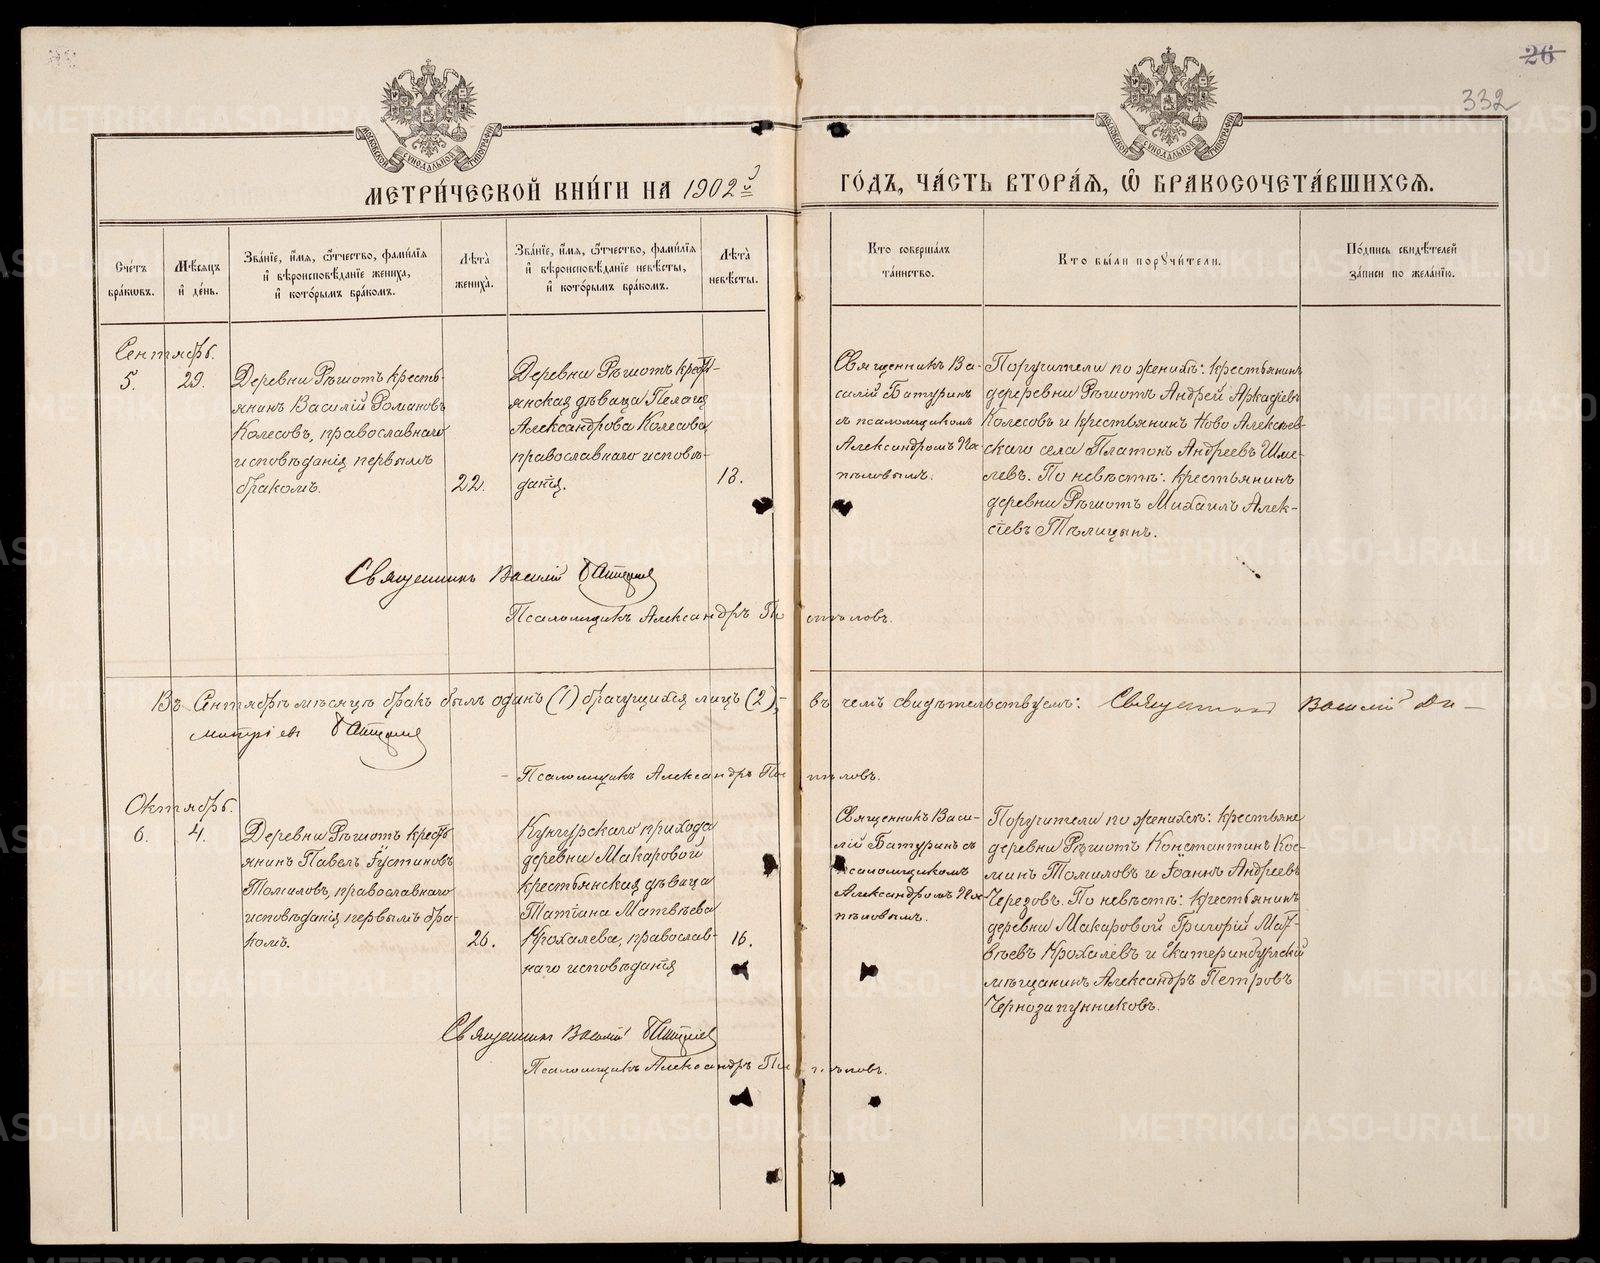 26
332
МОСКОВСКОЙ СѴНОДАЛЬНОЙ ТИПОГРАФІИ
МОСКОВСКОЙ СѴНОДАЛЬНОЙ ТИПОГРАФІИ
МЕТРИ́ЧЕСКОЙ КНИ́ГИ НА 1902й
ГО́ДЪ, ЧА́СТЬ ВТОРА́Я, Ѿ БРАКОСОЧЕТА́ВШИХСЯ.
Сче́тъ
бра́кѡвъ.
Мѣ́сяцъ
и҆ де́нь.
Зва́нїе, и҆́мя, ѻ҆́тчество, фамі́лїя
и҆ вѣроисповѣ́данїе жениха̀,
и҆ кото́рымъ бра́комъ.
Лѣта̀
жениха̀.
Зва́нїе, и҆́мя, ѻ҆́тчество, фамі́лїя
и҆ вѣроисповѣ́данїе невѣ́сты,
и҆ кото́рымъ бра́комъ.
Лѣта̀
невѣ́сты.
Кто соверша́лъ
та́инство.
Кто бы́ли порꙋчи́тели.
По́дпись свидѣ́телей
за́писи по жела́нїю.
Сентябрь.
5.
29.
Деревни Рѣшотъ кресть-
янинъ Василій Романовъ
Колесовъ, православнаго
исповѣданія первымъ
бракомъ.
22.
Деревни Рѣшотъ кресть-
янская дѣвица Пелагія
Александрова Колесова,
православнаго исповѣ-
данія.
18.
Священникъ Ва-
силій Батуринъ
съ псаломщикомъ
Александромъ По-
пѣловымъ.
Поручители по женихѣ: крестьянинъ
деревни Рѣшотъ Андрей Аркадіевъ
Колесовъ и крестьянинъ Ново Алексѣев-
скаго села Платонъ Андреевъ Шме-
левъ. По невѣстѣ: крестьянинъ
деревни Рѣшотъ Михаилъ Алек-
сіевъ Тѣлицынъ.
Священникъ Василій Батуринъ
Псаломщикъ Александръ Попѣловъ.
Въ Сентябрѣ мѣсяцѣ бракъ былъ одинъ (1) брачущихся лицъ (2), въ чемъ свидѣтельствуемъ: Священникъ Василій Ди-
митріевъ Батуринъ
Псаломщикъ Александръ Попѣловъ.
Октябрь.
6.
4.
Деревни Рѣшотъ кресть-
янинъ Павелъ Іустиновъ
Томиловъ, православнаго
исповѣданія первымъ бра-
комъ.
26.
Кунгурскаго прихода
деревни Макаровой
крестьянская дѣвица
Татіана Матвѣева
Крохалева, православ-
наго исповѣданія
16.
Священникъ Васи-
лій Батуринъ съ
псаломщикомъ
Александромъ По-
пѣловымъ.
Поручители по женихѣ: крестьяне
деревни Рѣшотъ Константинъ Кос-
минъ Томиловъ и Іоаннъ Андреевъ
Черезовъ. По невѣстѣ: крестьянинъ
деревни Макаровой Григорій Мат-
вѣевъ Крохалевъ и Екатеринбургскій
мѣщанинъ Александръ Петровъ
Чернозапунниковъ.
Священникъ Василій Батуринъ
Псаломщикъ Александръ Попѣловъ.
METRIKI.GASO-URAL.RU